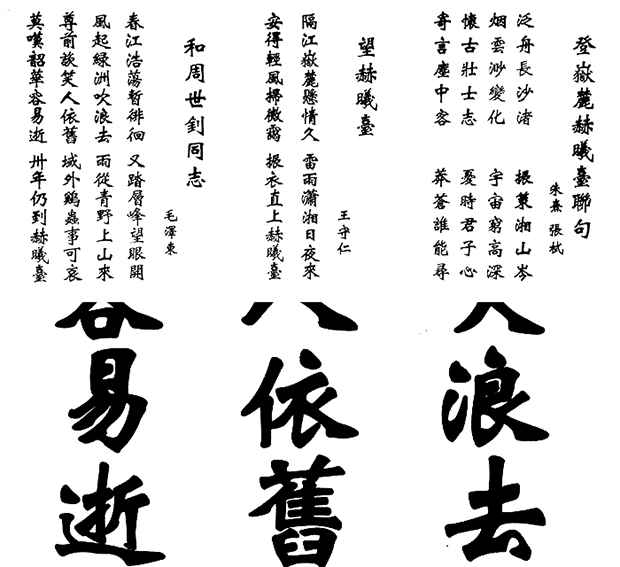 登嶽麓赫曦臺聯句
朱熹 張栻
泛舟長沙渚 振策湘山岑
烟雲渺變化 宇宙窮高深
懷古壯士志 憂時君子心
寄言塵中客 莽蒼誰能尋
望赫曦臺
王守仁
隔江嶽麓懸情久 雷雨瀟湘日夜來
安得輕風掃微靄 振衣直上赫曦臺
和周世釗同志
毛澤東
春江浩蕩暫徘徊 又踏層峰望眼開
風起綠洲吹浪去 雨從青野上山來
尊前談笑人依舊 域外鷄蟲事可哀
莫嘆韶華容易逝 卅年仍到赫曦臺
浪去
人依舊
容易逝